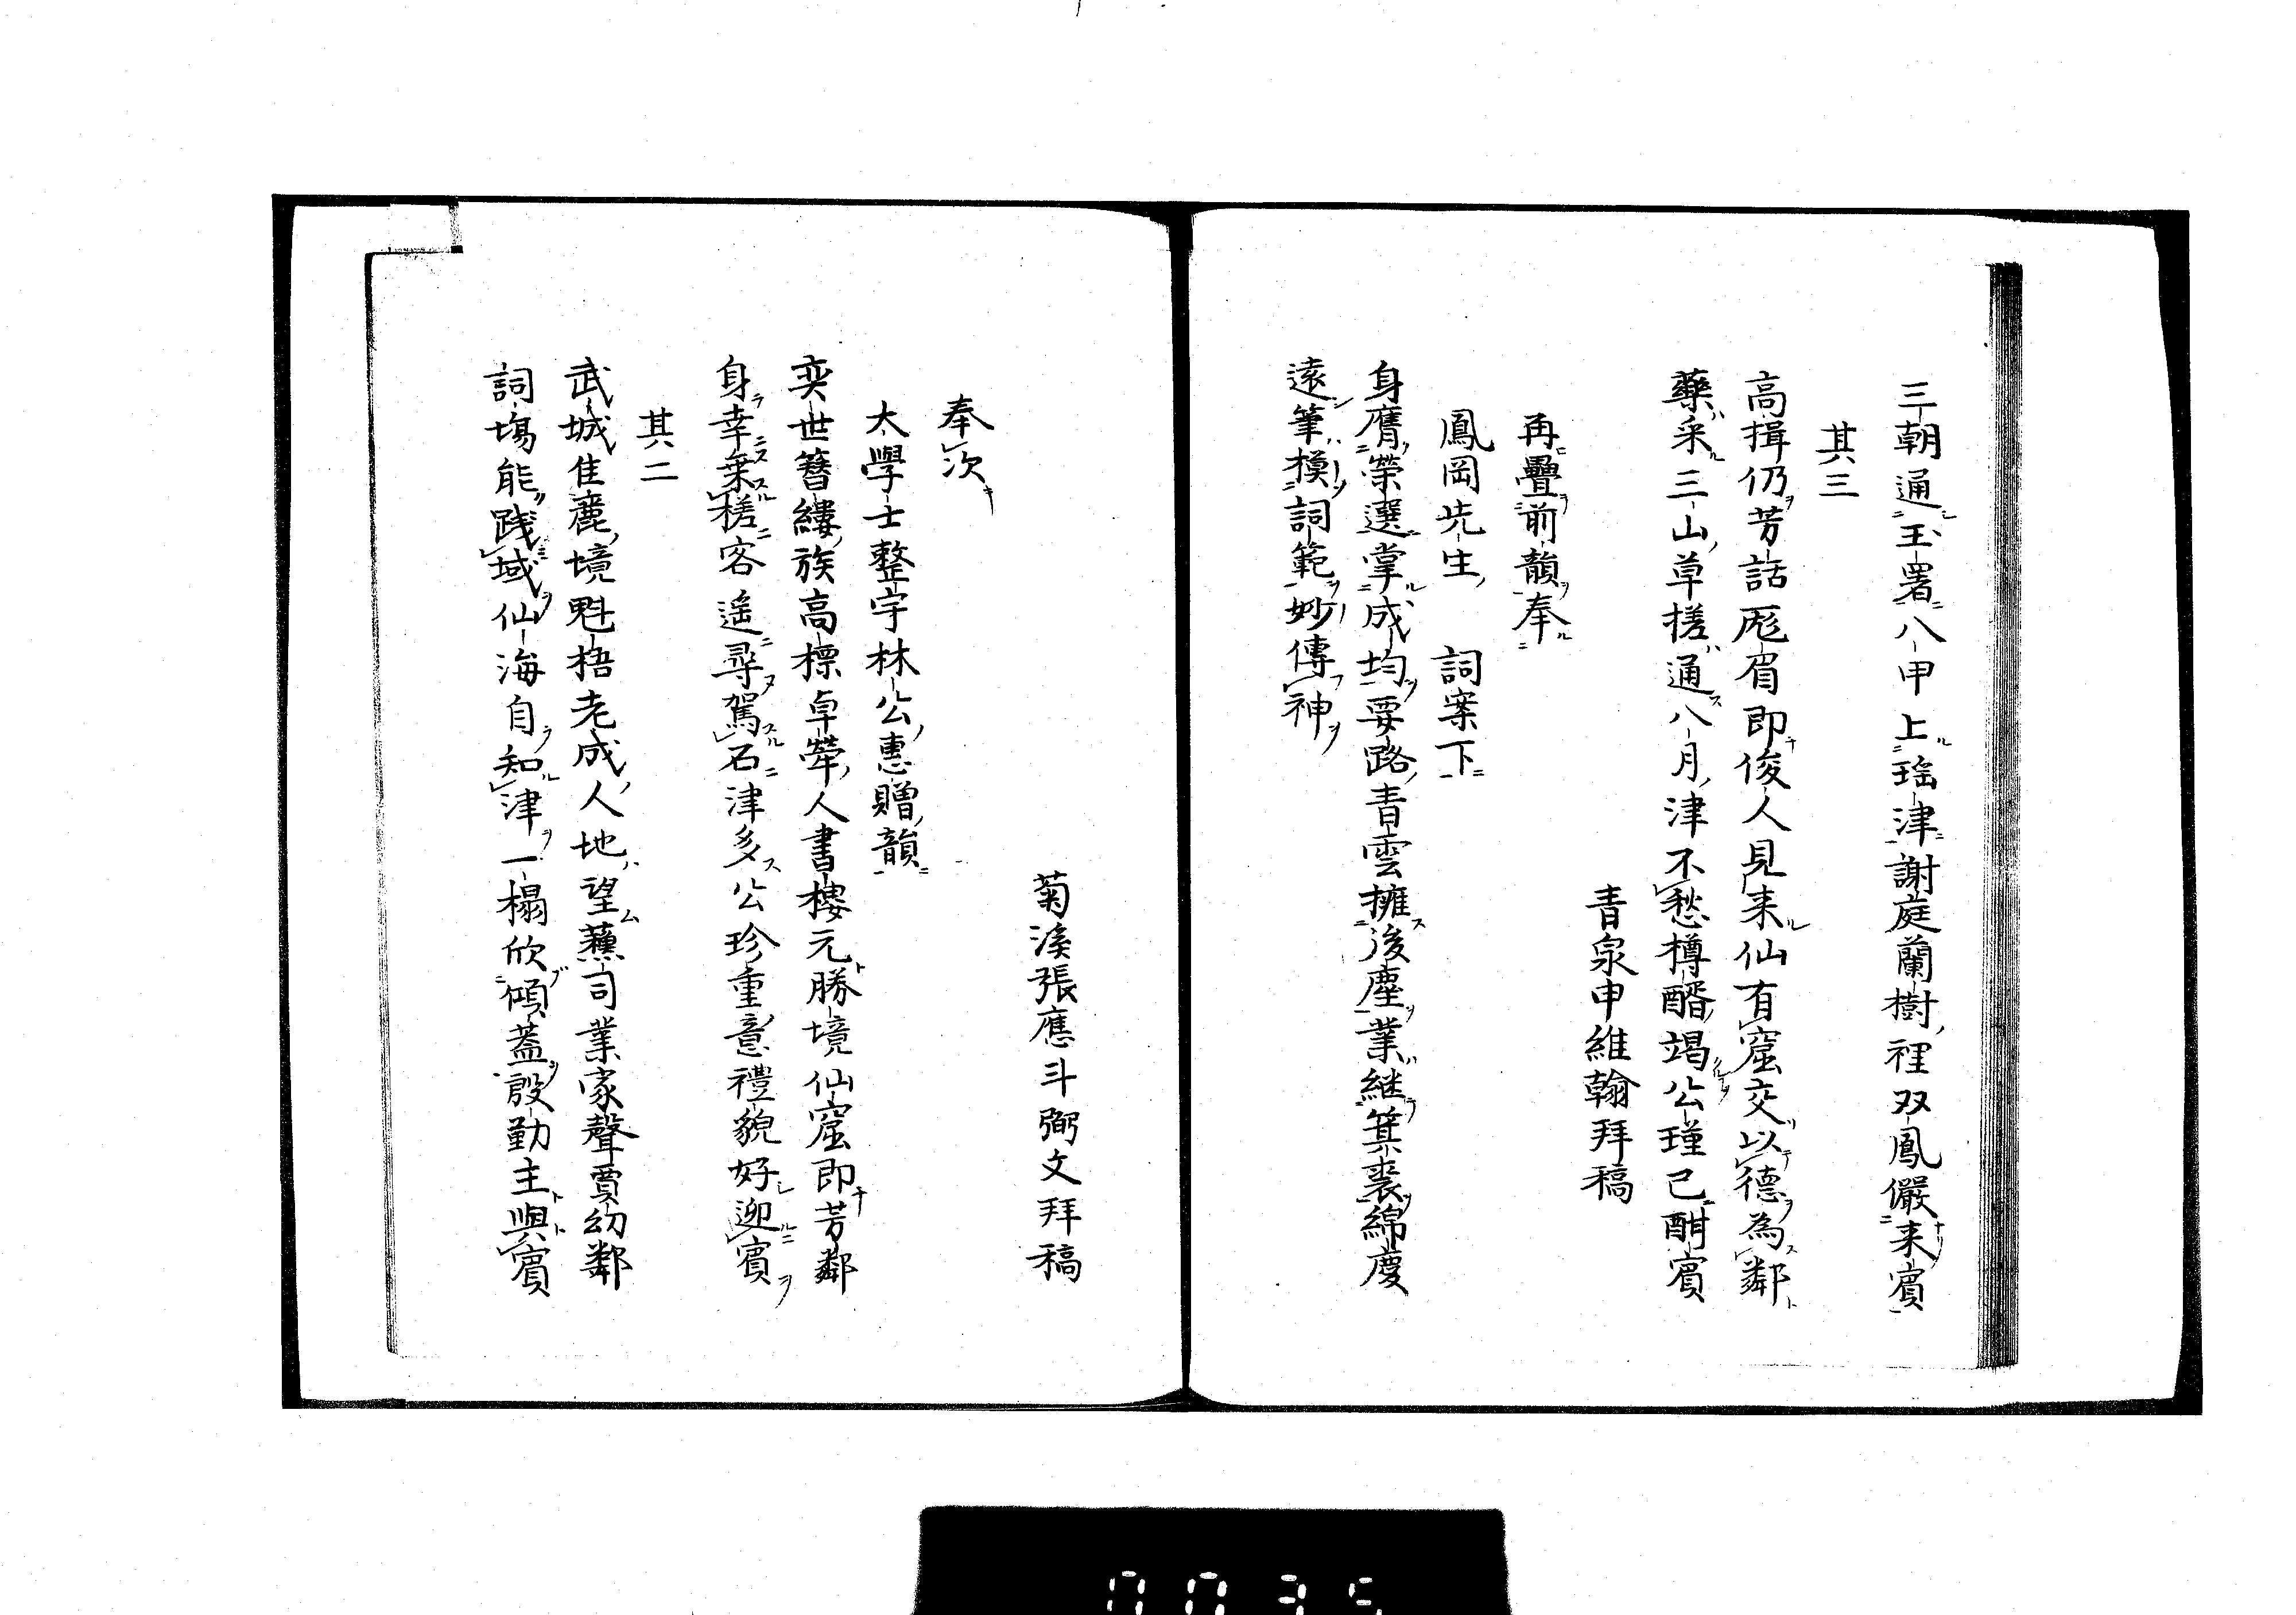 三朝通玉署八甲上瑤津謝庭蘭樹裡双鳳儼来賓
其三
高揖仍芳話厖眉即俊人見来仙有窟交以德為鄰
藥采三山草槎通八月津不愁樽醑竭公瑾已酣賓
青泉申維翰拜稿
再疊前韻奉
鳳岡先生 詞案下
身膺榮選掌成均要路青雲擁後塵業継箕裘綿慶
遠筆模詞範妙傳神
菊溪張應斗弼文拜稿
奉次
大學士整宇林公惠贈韻
奕世簪纓族高標卓犖人書樓元勝境仙窟即芳鄰
身幸乗槎客遥尋駕石津多公珍重意禮貌好迎賓
其二
武城佳麗境魁梧老成人地望蘓司業家聲賈幼鄰
詞場能踐域仙海自知津一榻欣傾蓋殷勤主與賓
0035